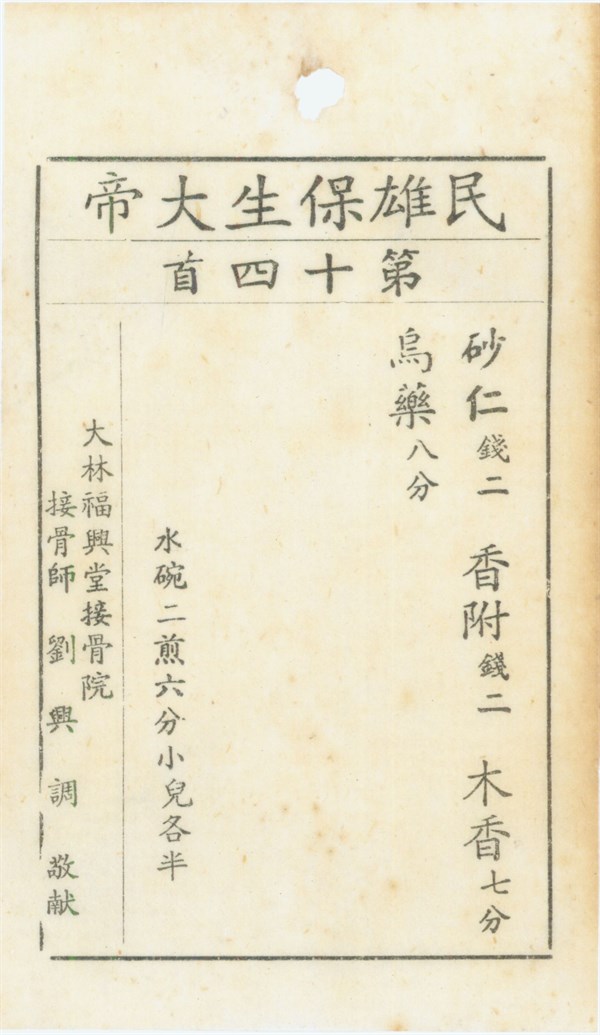 民雄保生大帝
第十四首
砂仁錢二 香附錢二 木香七分
烏藥八分
水碗二煎六分小兒各半
大林福興堂接骨院
接骨師 劉興調 敬献